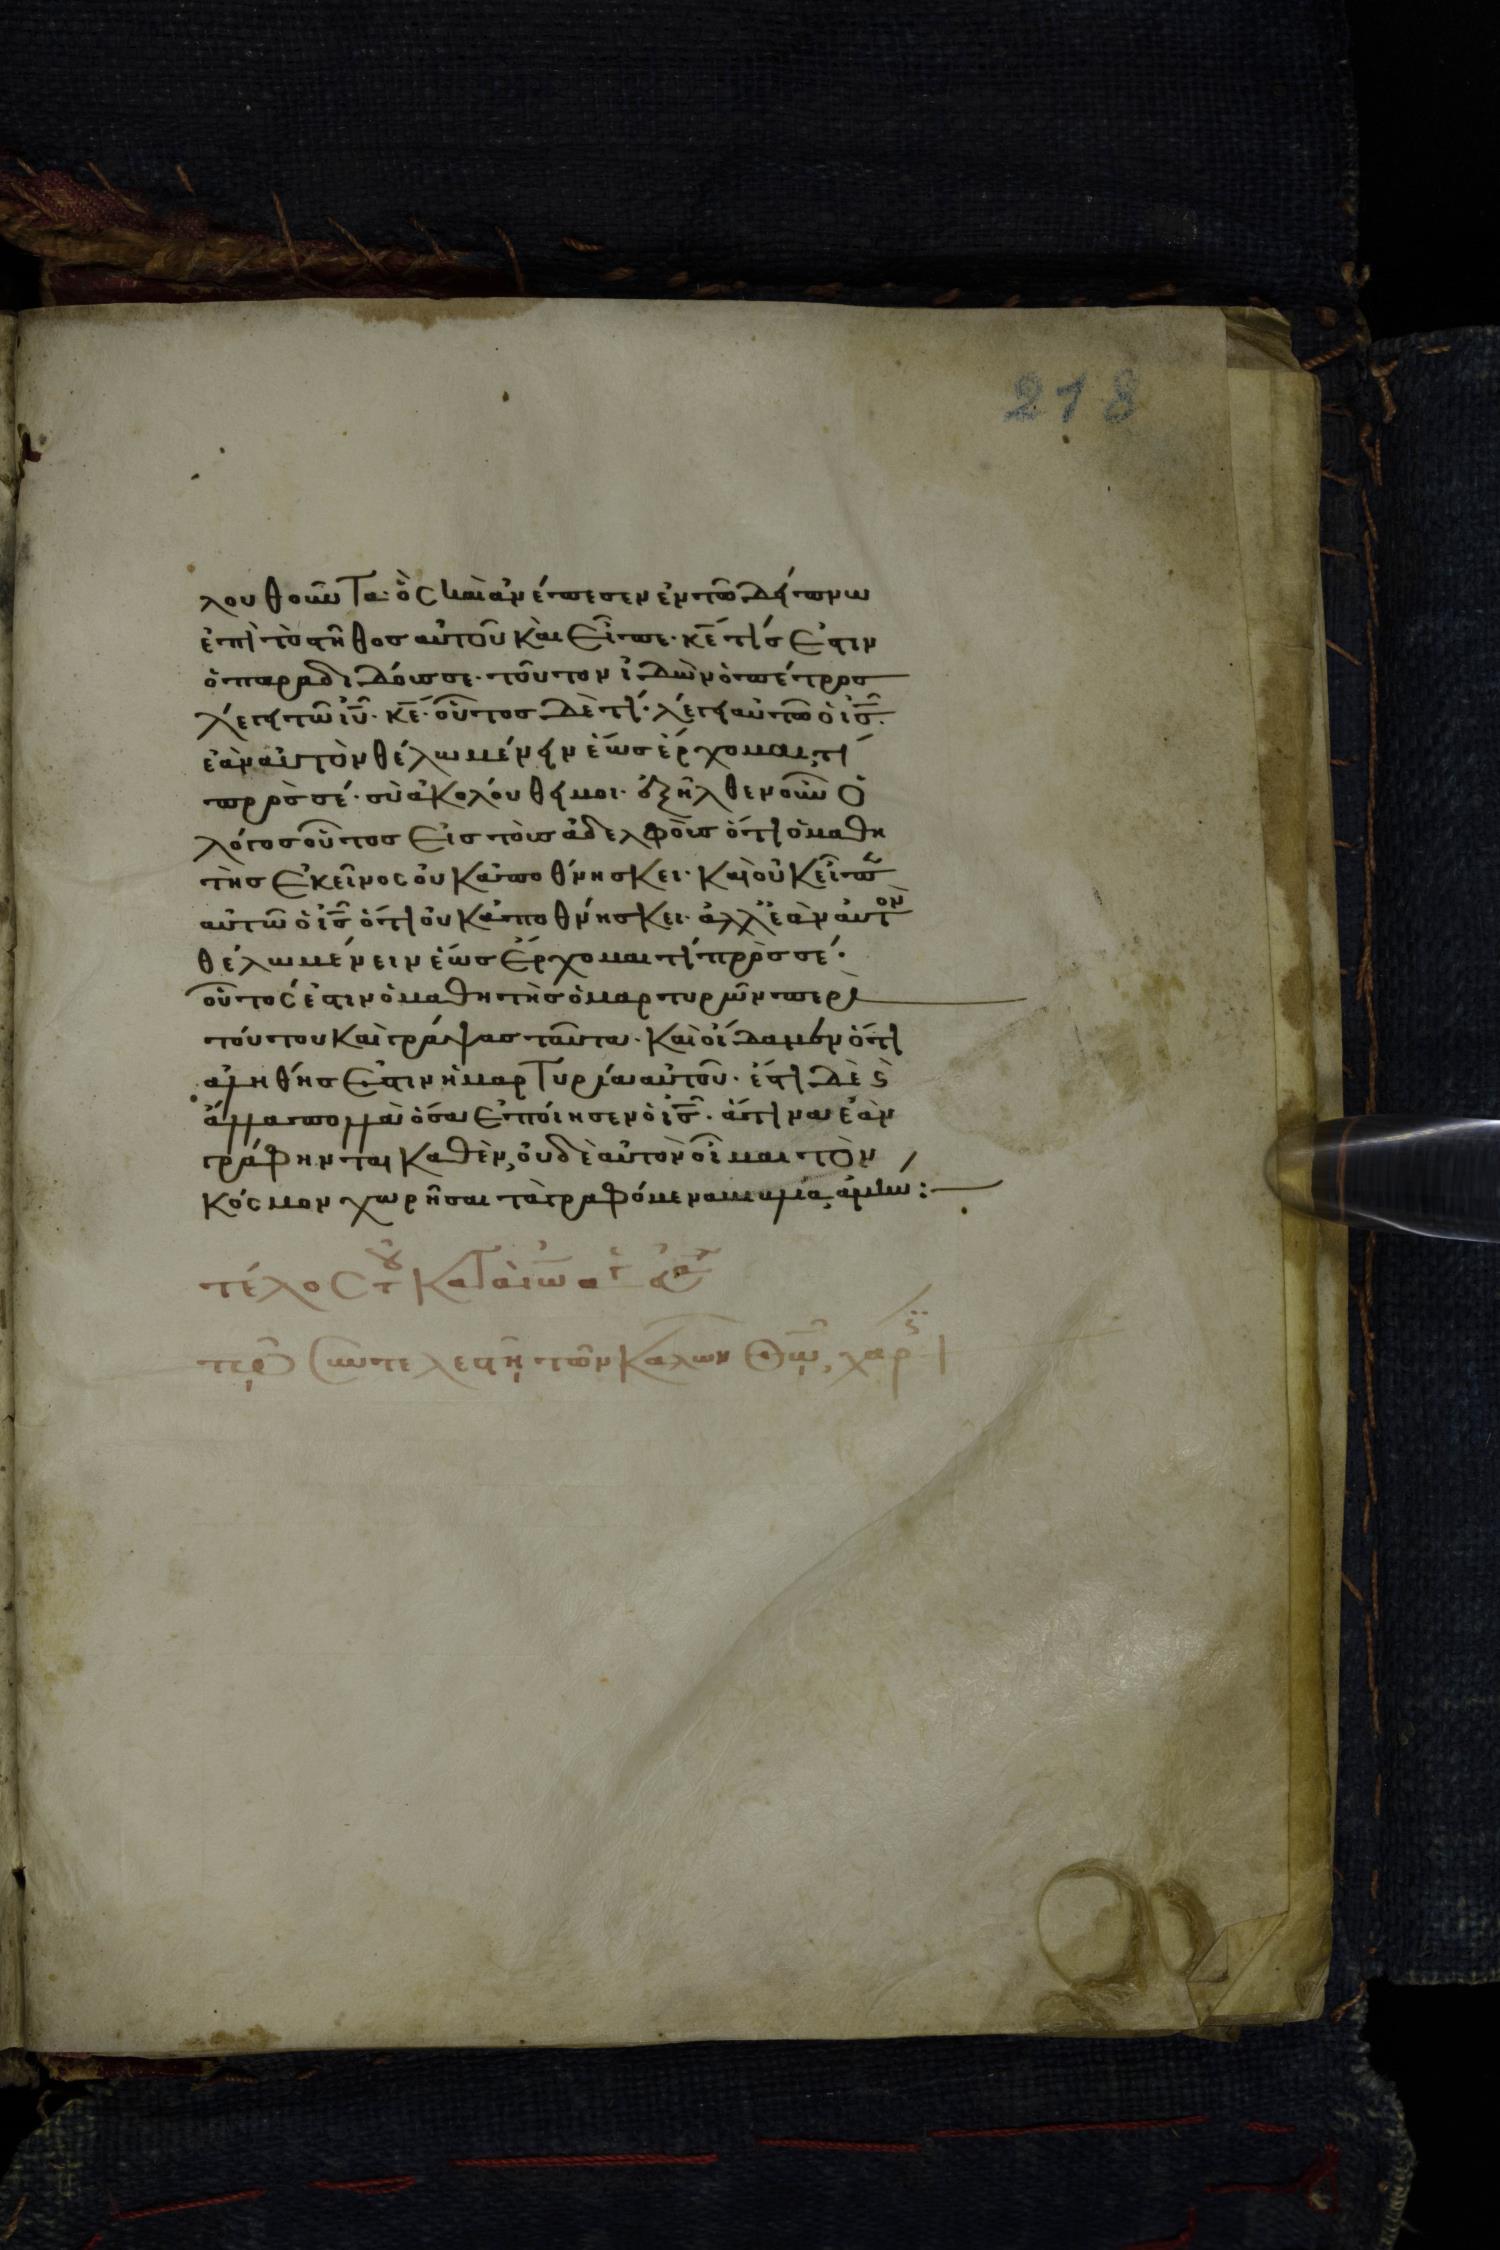 218
λουθοῦντα· ὃς καὶ ἀνέπεσεν ἐν τῶ δείπνω
ἐπὶ τὸ στῆθος αὐτοῦ καὶ εἶπε· κε τίς ἐστιν
ὁ παραδιδούσσε· τοῦτον ἰδὼν ὁ πέτρος
λέγει τῶ ιυ· κε· οὗτος δὲ τί· λέγει αὐτῶ ὁ ις·
ἐὰν αὐτὸν θέλω μένειν ἕως ἔρχομαι, τί
πρὸς σέ· σὺ ἀκολούθει μοι· ἐξῆλθεν οὖν ὁ
λόγος οὗτος εἰς τοὺς ἀδελφοὺς ὅτι ὁ μαθη
τὴς ἐκεῖνος οὐκ ἀποθνήσκει· καὶ οὐκ εἶπεν
αὐτῶ ὁ ις ὅτι οὐκ ἀποθνήσκει· ἀλλ' ἐὰν αὐτὸν
θέλω μένειν ἕως ἔρχομαι τί πρὸς σέ·
οὗτός ἐστιν ὁ μαθητὴς ὁ μαρτυρῶν περὶ
τούτου καὶ γράψας ταῦτα· καὶ οἴδαμεν ὅτι
ἀληθής ἐστιν ἡ μαρτυρία αὐτοῦ· ἔστι δὲ ϗ
ἄλλα πολλὰ ὅσα ἐποίησεν ὁ ις· ἅτινα ἐὰν
γράφηνται καθὲν, οὐδὲ αὐτὸν οἶμαι τὸν
κόσμον χωρῆσαι τὰ γραφόμενα βιβλία, ἀμήν:
τέλος τ κατὰ ἰω
συντελεστῆ τῶν καλῶν θω, χάρ